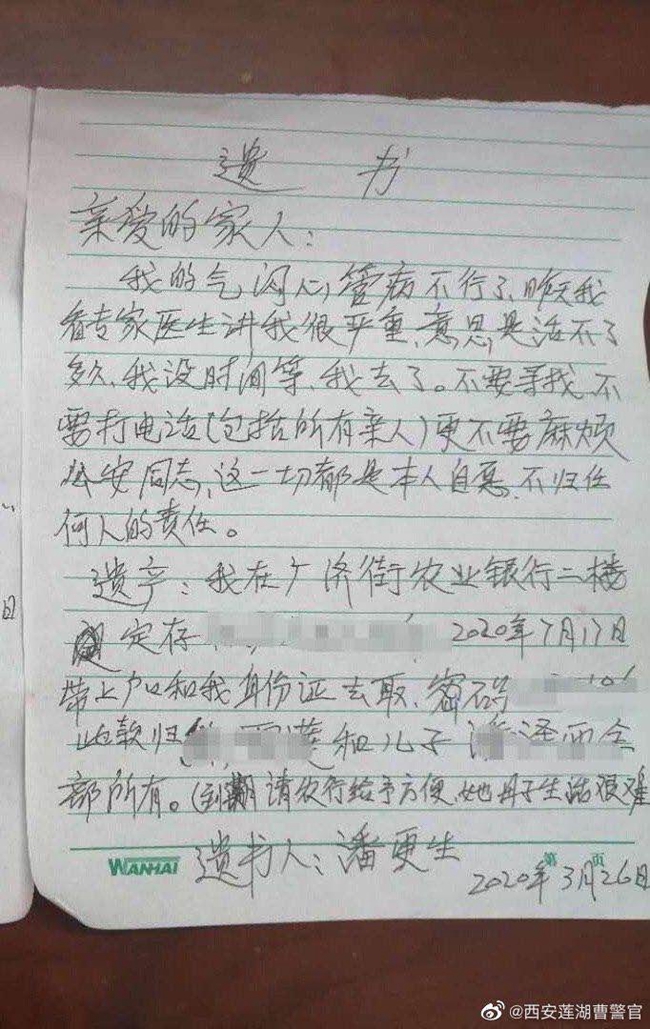 遗 书
亲爱的家人：
我的气,心,管病不行了、昨天我
看专家医生讲我很严重、意思是活不了
多久、我没时间等、我去了。不要寻找、不
要打电话(包括所有亲人)更不要麻烦
公安同志,这一切都是本人自愿、不归任
何人的责任。
遗产：我在广济街农业银行二楼
定存 2020年7月17日
带上户口和我身份证去取、密码
此款归 和儿子 泽西全
部所有。(到期请农行给予方便、她母子生活很难
遗书人：潘更生
WANHAI
第 页
2020年3月26日
日
@西安莲湖曹警官